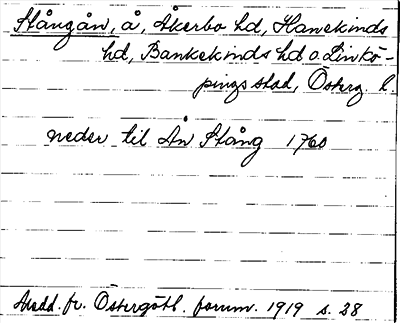 Stångån, å, Åkerbo hd, Hanekinds
hd, Bankekinds hd o. Linkö-
pings stad, Österg. l.
neder til Ån Stång 1760
Medd. fr. Östergötl. fornm. 1919 s. 28